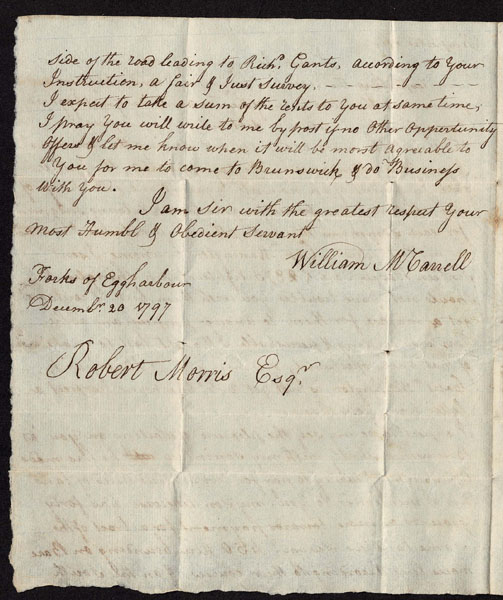 side of the road leading to Rich.d Gants, according to Your
Instruction, a fair & Just Survey.
I expect to take a sum of the rents to You at same time,
I pray You will write to me by post if no Other Opportunity
Offers & let me know when it will be morst agreable to
You for me to come to Brunswick & do Business
With You.
I am Sir with the greatest respect Your
most Humbl & Obedient Servant
William McCarrell
Forks of Eggharbour
Decembr. 20 1797
Robert Morris Esqr.